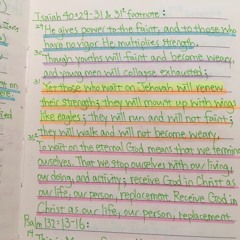 Isaiah 40:29-31 & 31² footnote:
29 He gives power to the faint, and to those who
have no vigor He multiplies strength.
30 Though youths will faint and become weary,
and young men will collapse exhausted;
31 Yet those who wait on Jehovah will renew
their strength; they will mount up with wings
like eagles; they will run and will not faint;
They will walk and will not become weary.
To wait on the eternal God means that we terminate
ourselves. That we stop ourselves with our living,
our doing, and activity; receive God in Christ as
our life, our person, replacement. Receive God in
Christ as our life, our person, replacement.
Psalm 132:13-16: